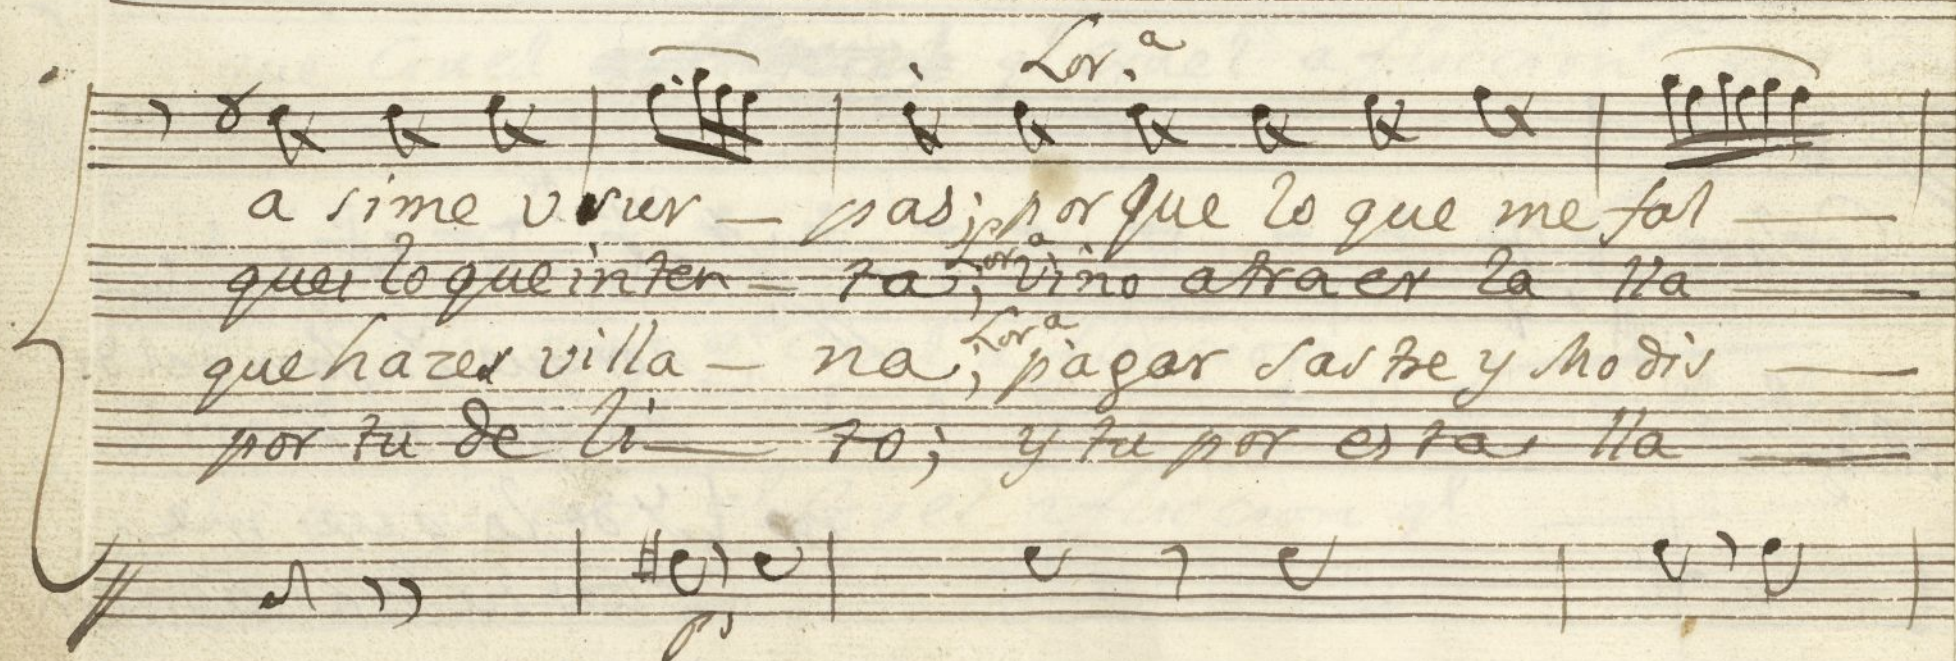 Lor.ª
a sime vsur — pas; porque lo que me fal —
ques lo que inten — ta; Lorª vino atraer la lla —
que hazes villa — na; Lorª pagar sastre y Modis —
por tu de li — to; y tu por estas lla —
ps